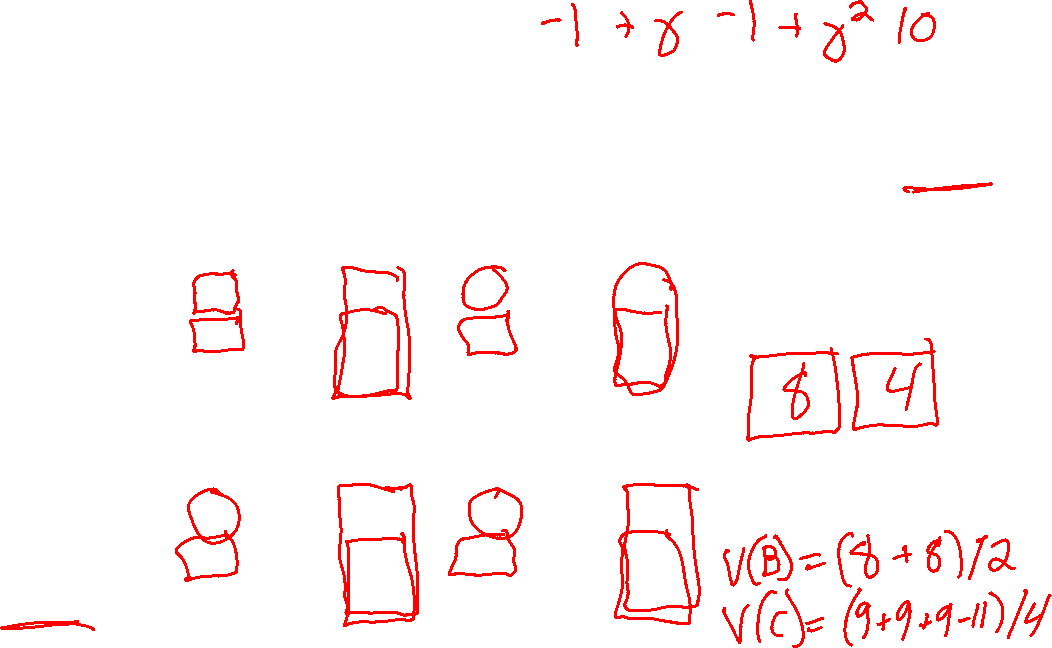 -1 + γ -1 + γ² 10
8 4
V(B) = (8 + 8)/2
V(C) = (9+9+9-11)/4